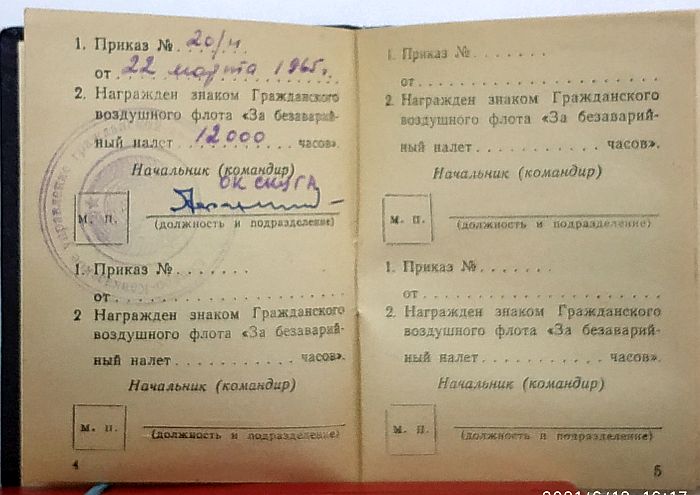 1. Приказ № 20/н
от 22 марта 1965г.
2. Награжден знаком Гражданского
воздушного флота «За безаварий-
ный налет 12000 часов».
Начальник (командир)
ОК СКУГА
м. п.
(должность и подразделение)
1. Приказ № . . . . . . .
от . . . . . . . . . . . . . . . . . . . . . .
2 Награжден знаком Гражданского
воздушного флота «За безаварий-
ный налет . . . . . . . . . . . часов».
Начальник (командир)
м. п.
(должность и подразделение)
4
1. Приказ № . . . . . . .
от . . . . . . . . . . . . . . . . . . . . . .
2. Награжден знаком Гражданского
воздушного флота «За безаварий-
ный налет . . . . . . . . . . . часов».
Начальник (командир)
м. п.
(должность и подразделение)
1. Приказ № . . . . . . .
от . . . . . . . . . . . . . . . . . . . . . .
2. Награжден знаком Гражданского
воздушного флота «За безаварий-
ный налет . . . . . . . . . . . часов».
Начальник (командир)
м. п.
(должность и подразделение)
5